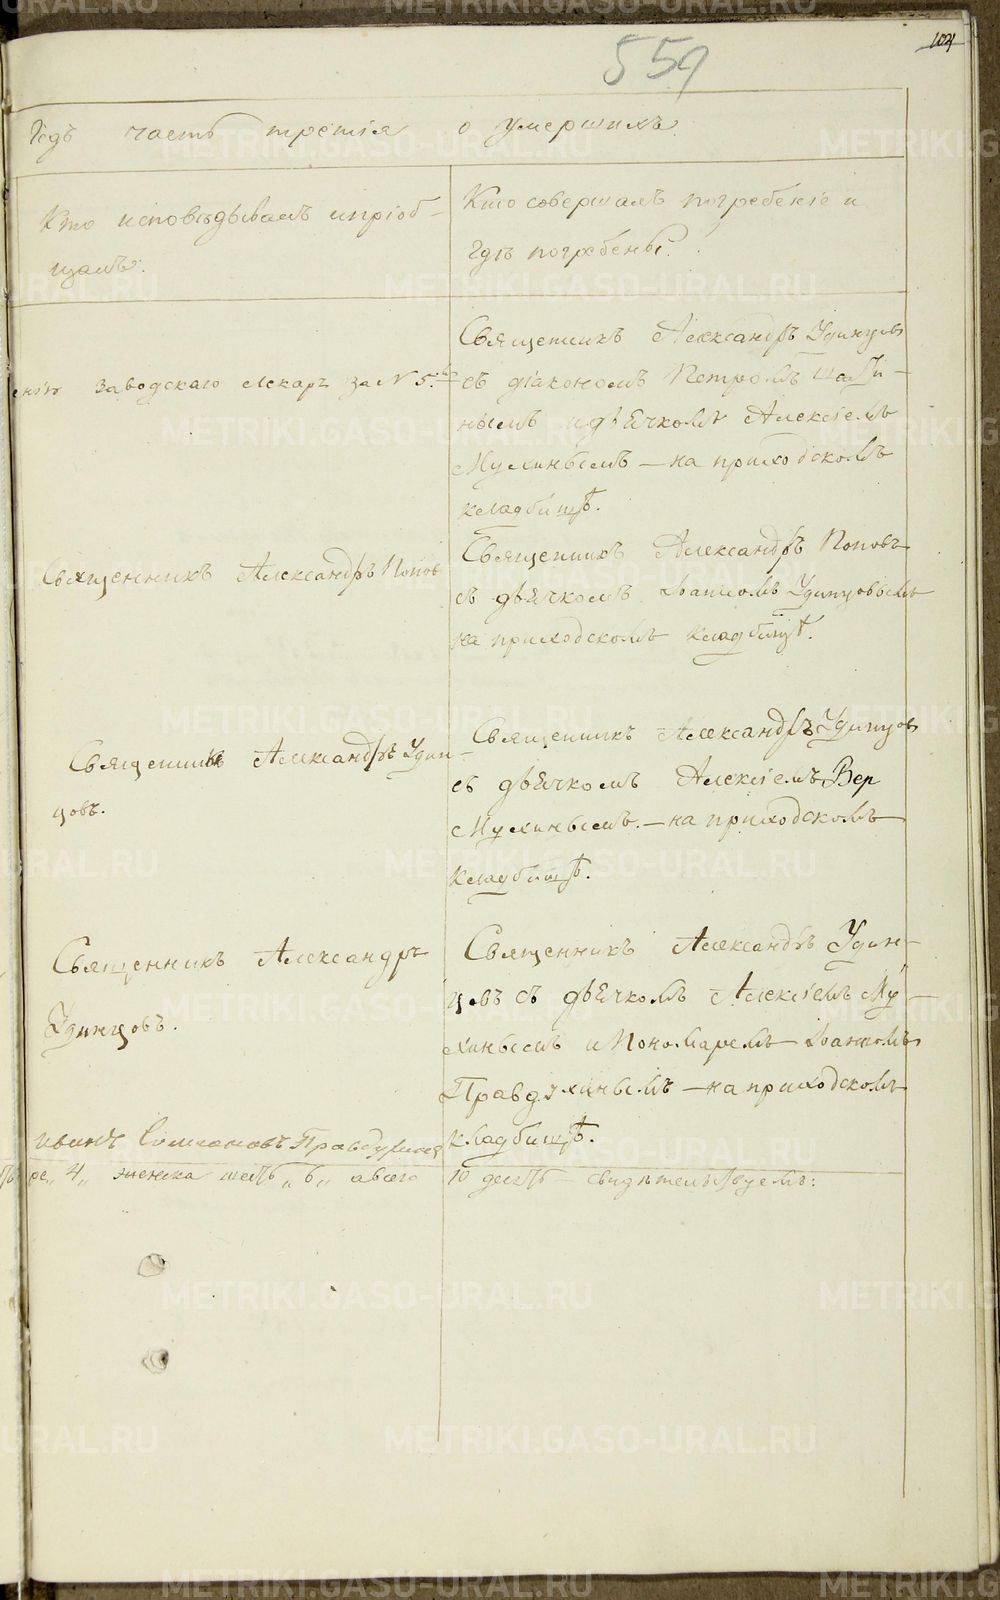 104
559
Годъ часть третія о умершихъ.
Кто исповѣдывалъ и пріоб-
щалъ:
Кто совершалъ погребеніе и
гдѣ погребены.
заводскаго лекаря за № 5.
Священникъ Александръ Удинцовъ
съ діакономъ Петромъ
нымъ и дьячкомъ Алексіемъ
Мухинымъ — на приходскомъ
кладбищѣ.
Священникъ Александръ Попов
Священникъ Александръ Поповъ
съ дьячкомъ Іваномъ Удинцовымъ
на приходскомъ кладбищѣ.
Священникъ Александръ Удин-
цовъ.
Священникъ Александръ Удинцов
съ дьячкомъ Алексіемъ Вер
Мухинымъ. — на приходскомъ
кладбищѣ.
Священникъ Александръ
Удинцовъ.
Священникъ Александръ Удин-
цовъ съ дьячкомъ Алексіемъ Му-
хинымъ и Пономаремъ Іваномъ
Правдухинымъ — на приходскомъ
кладбищѣ.
иванъ Симеоновъ Правдухинъ
ре „4„ женска шесть „6„ а всего 10 десять — свидѣтельствуемъ:
METRIKI.GASO-URAL.RU